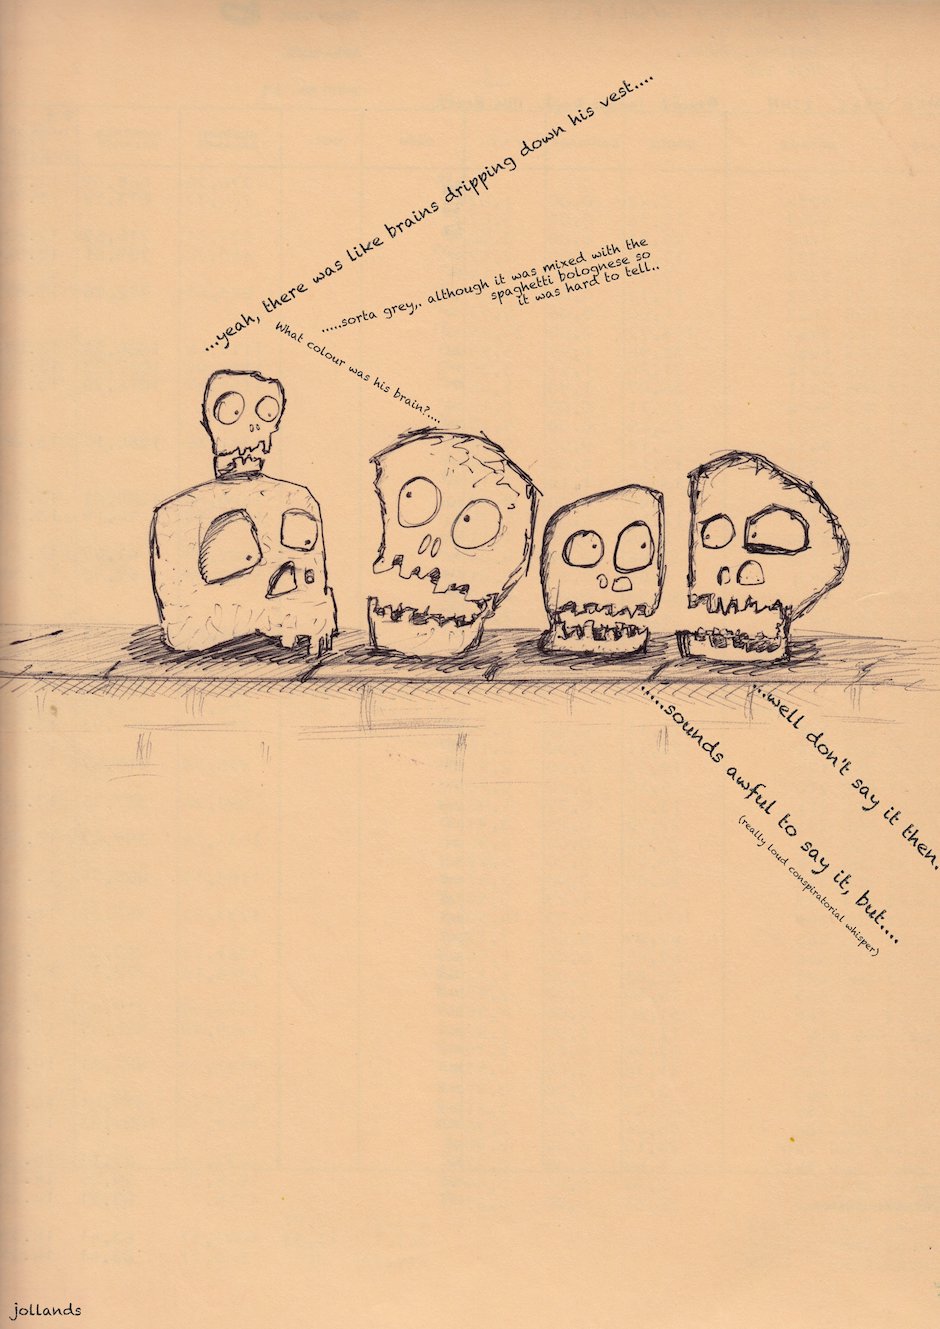 ...yeah, there was like brains dripping down his vest....
What colour was his brain?....
.....sorta grey,. although it was mixed with the
spaghetti bolognese so
it was hard to tell..
.....sounds awful to say it, but....
(really loud conspiratorial whisper)
...well don't say it then.
jollands